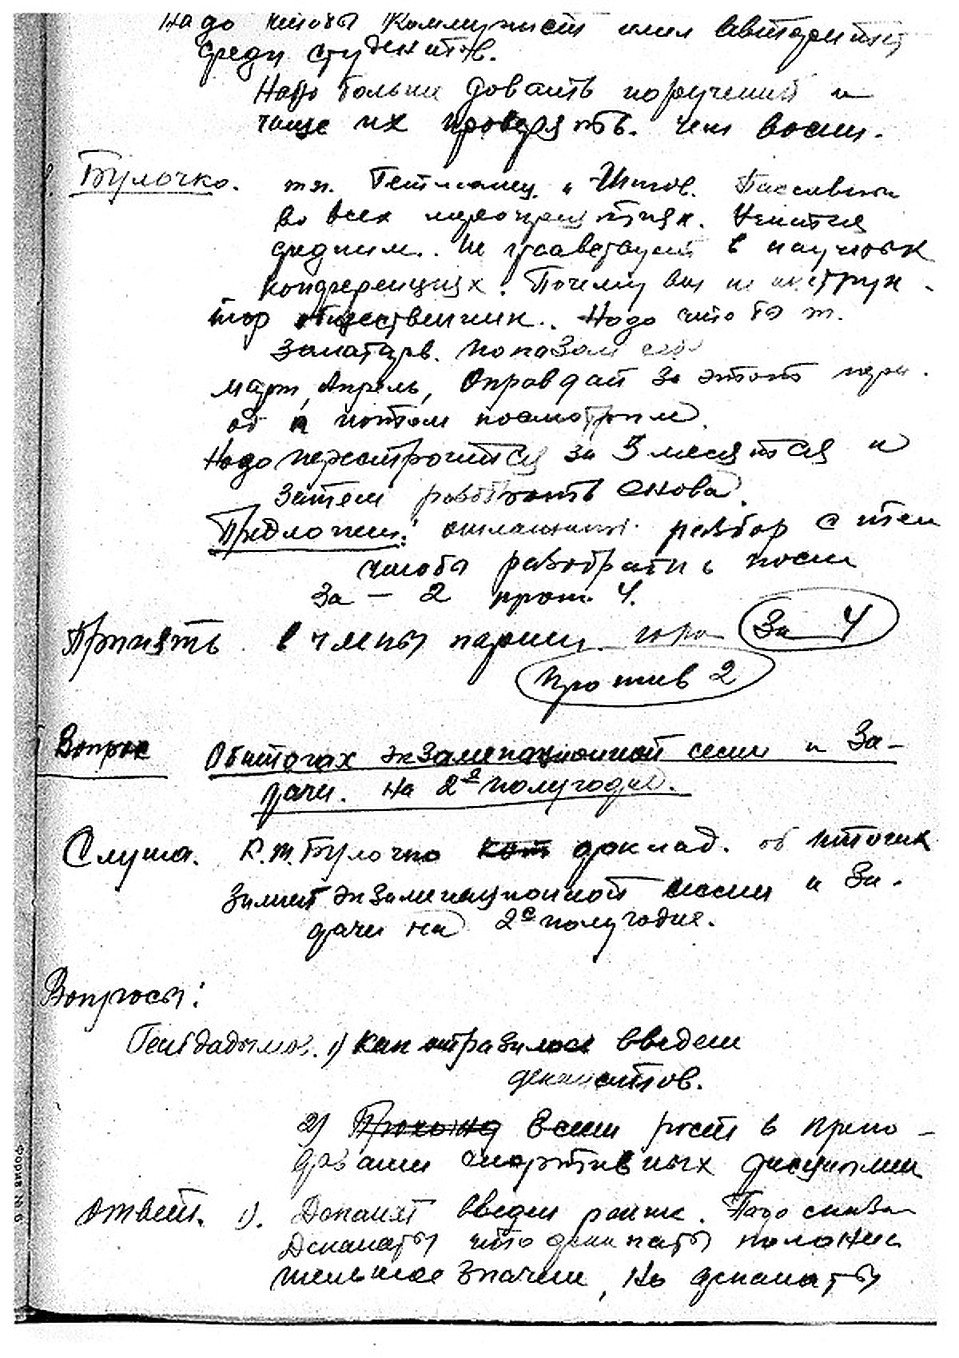 Надо чтобы Коммунист имел авторитет
среди студентов.
Надо больше давать поручений и
чаще их проверять. чем
Булочко. тт. Гетманец и Пассивны
во всех мероприятиях. Учится
средним. Не участвует в научных
конференциях. Почему вы не инструк-
тор общественник. Надо чтобы т.
показал себя
март, Апрель, Оправдай за этот пери-
од и потом посмотрим
Надо перестроиться за 3 месяца и
затем разобрать снова.
Предложен: разбор с тем
чтобы разобрать после
За - 2 прот. 4.
Принять в члены партии За 4
Против 2
Вопрос Об итогах экзаменационной сессии и За-
дачи. На 2е полугодие.
Слуша. К.Т. Булочко доклад. об итогах
Зимней экзаменационной сессии и За-
дачи на 2е полугодие.
Вопросы:
1) Как отразилось введен
деканатов.
2) Есть ли рост в препо-
давании спортивных дисциплин
Ответ. 1). Деканат введен раньше.
Деканаты что деканаты положи
тельное значен, Но деканаты
Форма № 6